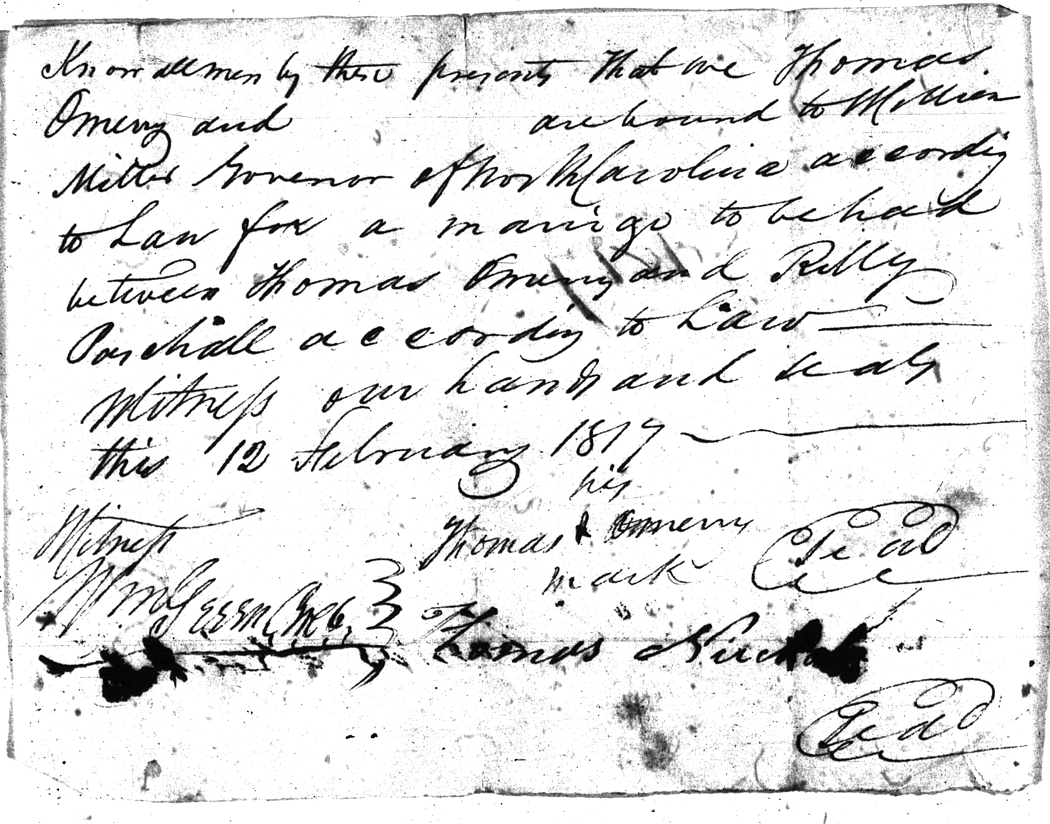 Know all men by these presents that we Thomas
Omerry and are bound to William
Miller Governor of North Carolina according
to Law for a marrige to be had
between Thomas Omerry and Rilly
Paschall according to Law
Witness our hands and seals
this 12 February 1817
his
Witness Thomas Omerry Seal
mark
Wm Green
Thomas
Seal